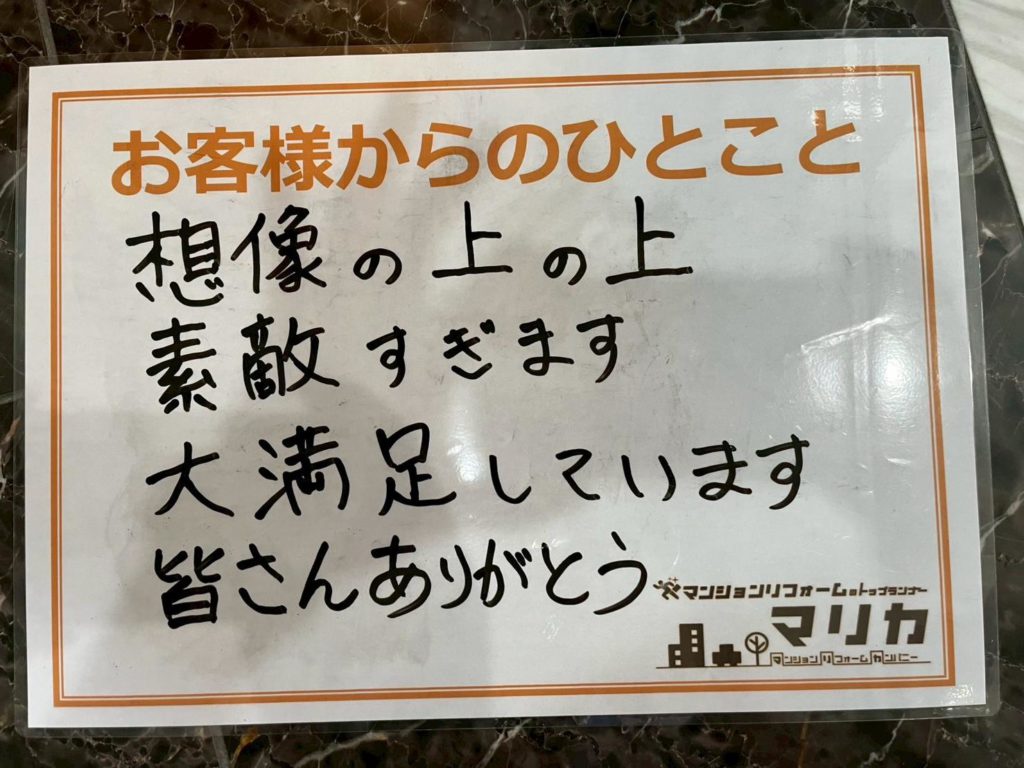 お客様からのひとこと
想像の上の上
素敵すぎます
大満足しています
皆さんありがとう
マンションリフォームのトップランナー
マリカ
マンションリフォームカンパニー